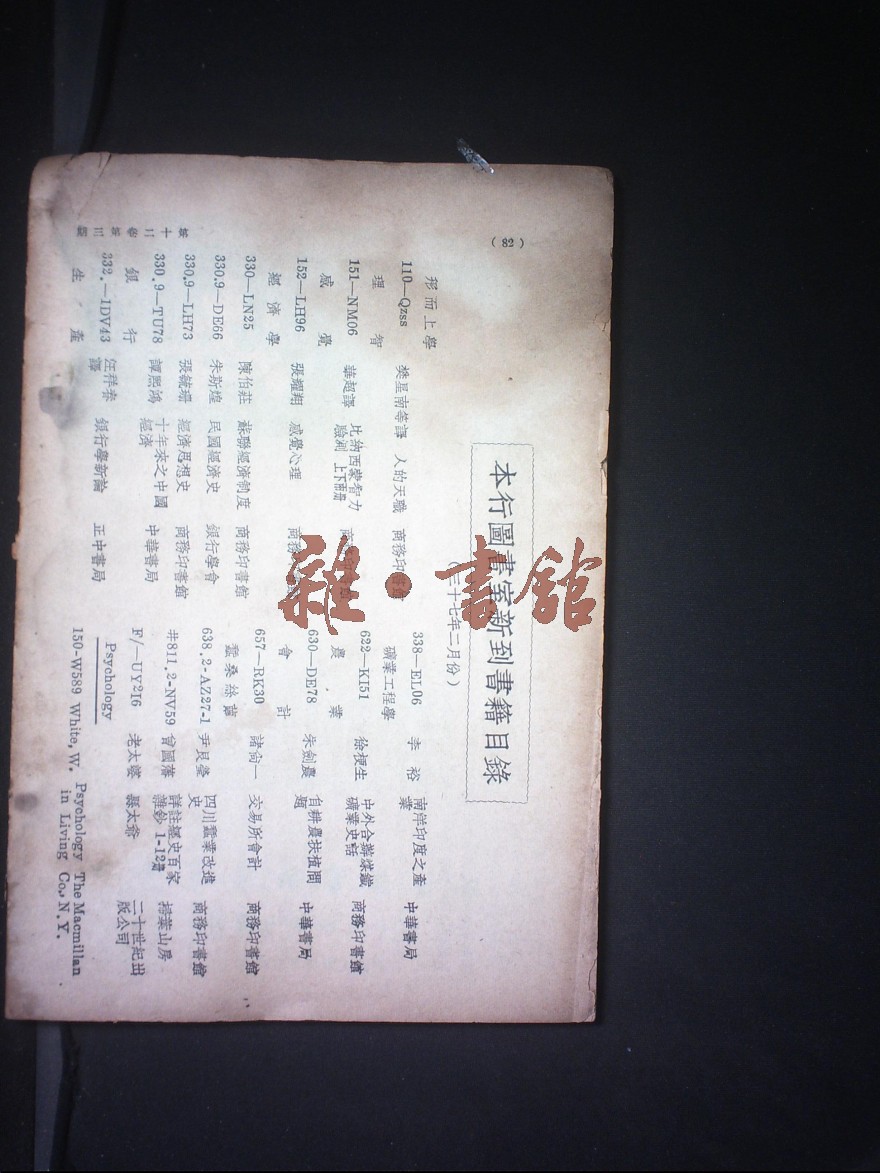 (82)
本行圖書室新到書籍目錄
三十七年二月份)
形而上學
110—Qzss 樊星南等譯 人的天職 商務印書館
理智
151—NM06 華超譯 比納西蒙智力
驗測 上下兩冊
感覺
152—LH96 張耀翔 感覺心理 商務
經濟學
330—LN25 陳伯莊 蘇聯經濟制度 商務印書館
330.9—DE66 朱斯煌 民國經濟史 銀行學會
330.9—LH73 張毓珊 經濟思想史 商務印書館
330.9—TU78 譚熙鴻 十年來之中國
經濟 中華書局
銀行
332.—IDV43 汪祥春
譯 銀行學新論 正中書局
生產
338—EL06 李裕 南洋印度之產
業 中華書局
礦業工程學
622—KI51 徐梗生 中外合辦煤鐵
礦業史話 商務印書館
農業
630—DE78 朱劍農 自耕農扶植問
題 中華書局
會計
657—RK30 諸尙一 交易所會計 商務印書館
蠶桑絲繭
638.2-AZ27-1 尹良瑩 四川蠶業改進
史 商務印書館
#811.2-NV59 曾國藩 詳註經史百家
雜鈔 1-12冊 掃葉山房
F/—UY216 老太婆 縣太爺 二十世紀出
版公司
Psychology
150-W589 White, W. Psychology The Macmillan
in Living Co., N.Y.
第十二卷第三期
雜·書館